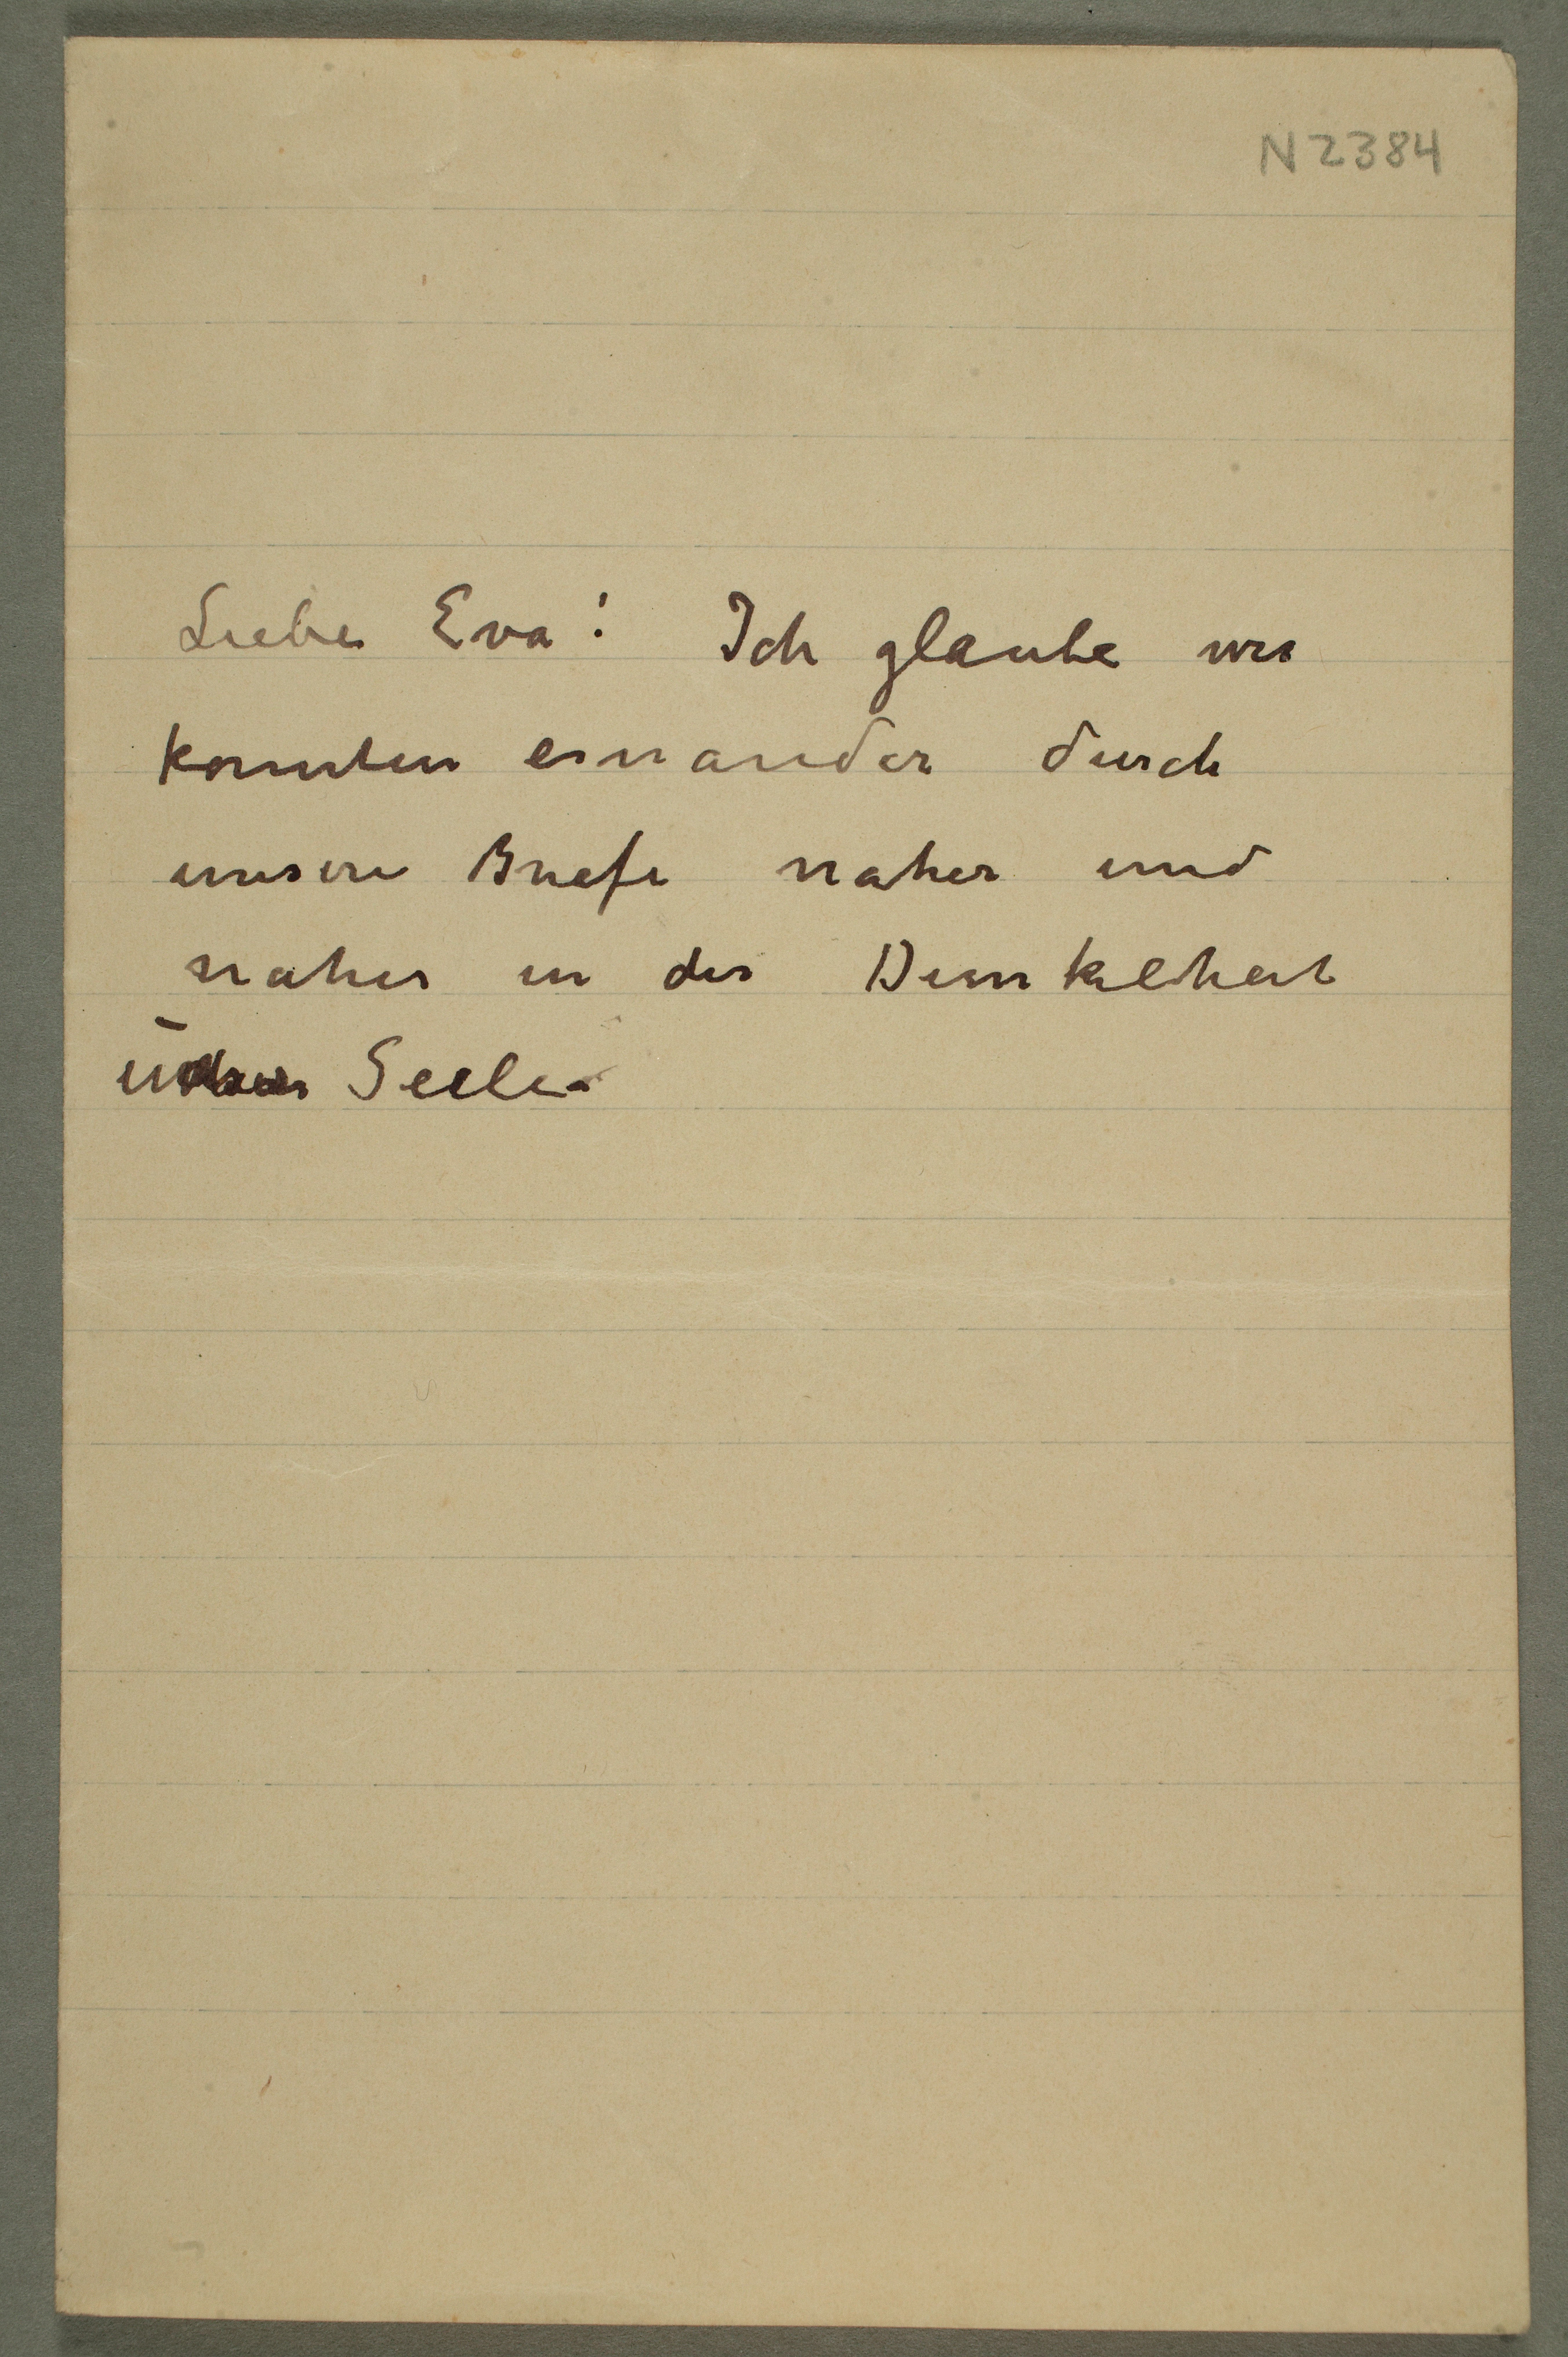 N 2384
Liebe Eva! Ich glaube wir
kommten einander durch
unsere Briefe naher und
naher in der Dunkelheit
Seele